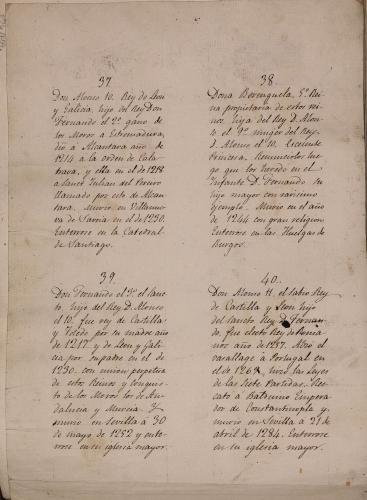 37.
Don Alonso 10. Rey de Leon
y Galicia, hijo del Rey Don
Fernando el 2º. gano de
los Moros a Estremadura,
dio a Alcantara año de
1214 a la orden de Cala
trava, y ella en el de 1218
a Sanct Julian del Pereiro
llamado por esto de Alcan
tara, murio en Villanue
va de Sarria en el de 1230.
Enterrose en la Catedral
de Santiago.
38.
Dona Berenguela, 5ª. Rei
na propietaria de estos rei
nos, hija del Rey D. Alon
so, el 9º. muger del Rey
D. Alonso el 10.
Princesa. Renunciolos lue
go que los heredo en el
Infante D. Fernando su
hijo mayor con rarisimo
ejemplo. Murio en el año
de 1244 con gran religion
Enterrose en las Huelgas de
Burgos.
39.
Don Fernando el 3º. el Sanc
to, hijo del Rey D. Alonso
el 10. fue rey de Castilla
y Toledo por su madre año
de 1217 y de Leon y Gali
cia por su padre en el de
1230. con union perpetua
de estos Reinos y conquis
to de los Moros los de An
dalucia y Murcia. Y
murio en Sevilla a 30
de mayo de 1252 y ente
rrose en su iglesia mayor.
40.
Don Alonso 11. el sabio Rey
de Castilla y Leon hijo
del sancto Rey D. Fernan
do, fue electo Rey de Roma
nos año de 1257. Alzo el
vasallage a Portugal en
el de 1269, hizo las Leyes
de las Siete Partidas. Res
cato a Balduino Empera
dor de Constantinopla y
murio en Sevilla a 21 de
abril de 1284. Enterrose
en su iglesia mayor.